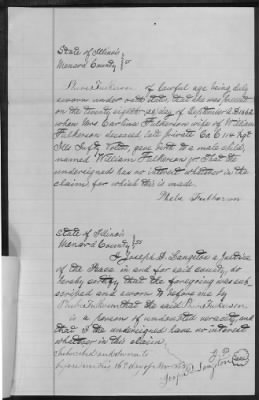 State of Illinois
Menard County } ss
of lawful age being duly
sworn under oath states that she was present
on the twenty eighth day of September A D 1862
when Mrs Carolina Fulkerson wife of William
Fulkerson deceased late private Co C 114 Regt
Ills Infty Volts, gave birth to a male child,
named William Fulkerson jr that the
undersigned has no interest whatever in the
claim for which this is made.
Phebe Fulkerson
State of Illinois
Menard County } ss
I Joseph D. Langston a Justice
of the Peace in and for said county do
hereby certify that the foregoing was sub
scribed and sworn to before me by
Fulkerson that the said Fulkerson
is a person of undoubted veracity and
that I the undersigned have no interest
whatever in this claim.
Subscribed and sworn to
before me this 16th day of
Joseph D. Langston